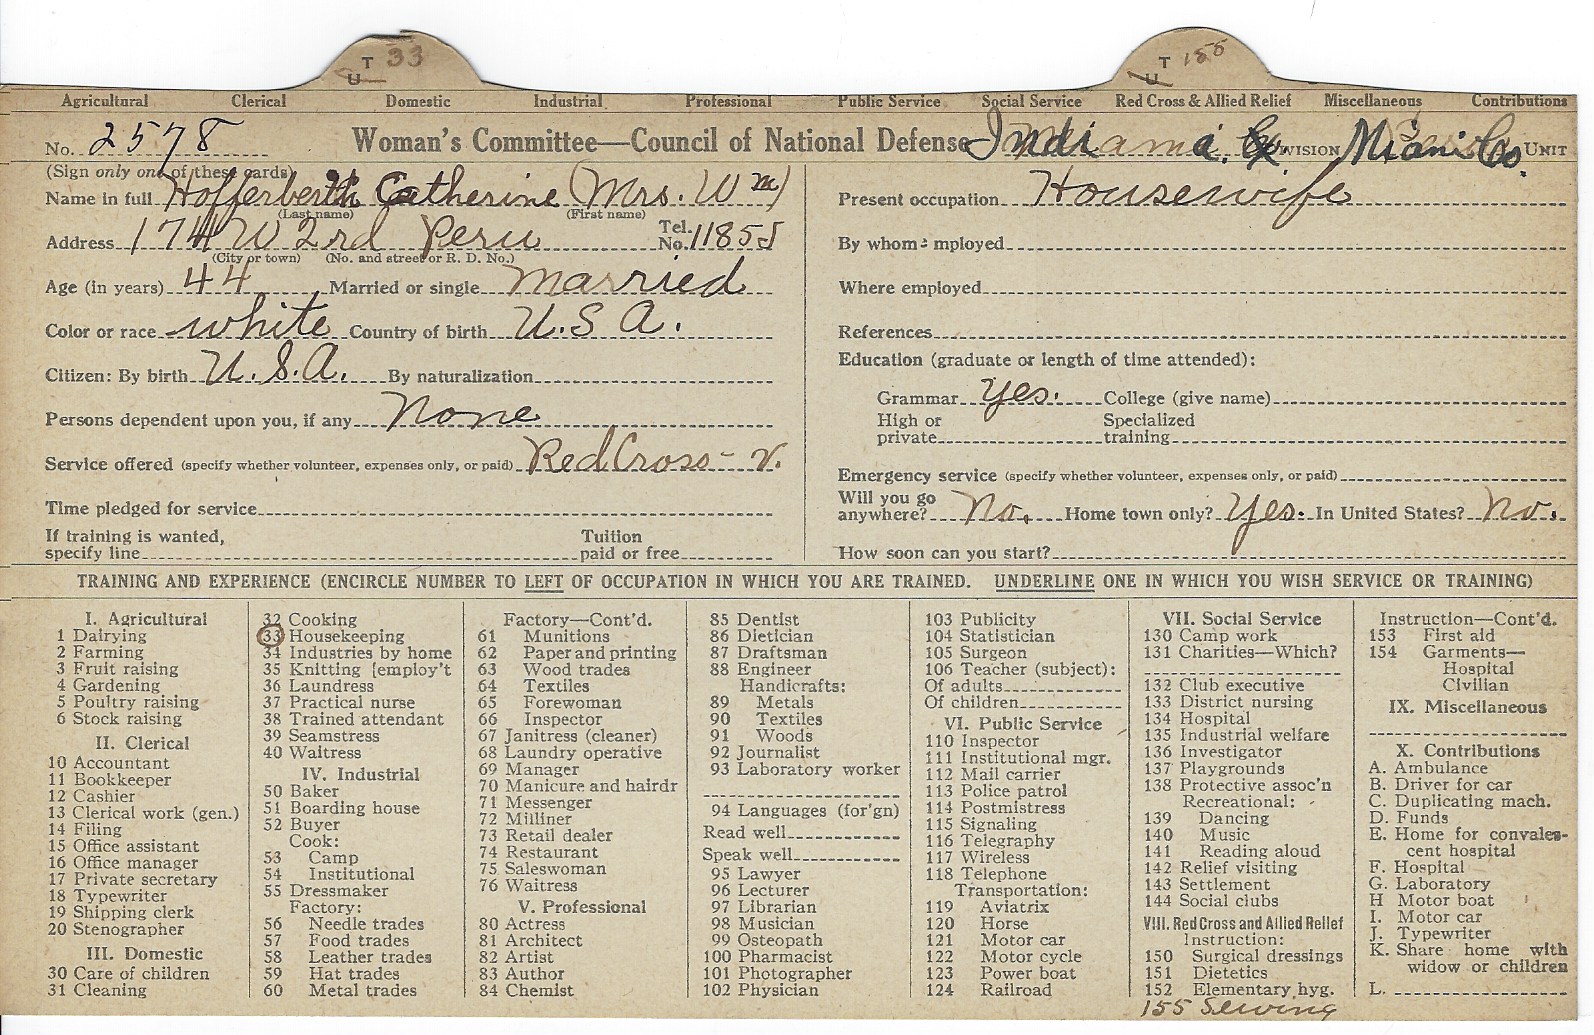 T 33
U
T 155
U
Agricultural Clerical Domestic Industrial Professional Public Service Social Service Red Cross & Allied Relief Miscellaneous Contributions
No. 2578 Woman's Committee—Council of National Defense Indiana Division Miami Co. Unit
(Sign only one of these cards)
Name in full Hofferberth Catherine (Mrs. Wm)
(Last name) (First name)
Address 174 W 2rd Peru Tel. No. 1185J
(City or town) (No. and street or R. D. No.)
Age (in years) 44 Married or single married
Color or race white Country of birth U.S A.
Citizen: By birth U.S.A. By naturalization
Persons dependent upon you, if any none
Service offered (specify whether volunteer, expenses only, or paid) Red Cross - v.
Time pledged for service
If training is wanted, specify line Tuition paid or free
Present occupation Housewife
By whom employed
Where employed
References
Education (graduate or length of time attended):
Grammar yes. College (give name)
High or private Specialized training
Emergency service (specify whether volunteer, expenses only, or paid)
Will you go anywhere? No. Home town only? Yes. In United States? No.
How soon can you start?
TRAINING AND EXPERIENCE (ENCIRCLE NUMBER TO LEFT OF OCCUPATION IN WHICH YOU ARE TRAINED. UNDERLINE ONE IN WHICH YOU WISH SERVICE OR TRAINING)
I. Agricultural
1 Dairying
2 Farming
3 Fruit raising
4 Gardening
5 Poultry raising
6 Stock raising
II. Clerical
10 Accountant
11 Bookkeeper
12 Cashier
13 Clerical work (gen.)
14 Filing
15 Office assistant
16 Office manager
17 Private secretary
18 Typewriter
19 Shipping clerk
20 Stenographer
III. Domestic
30 Care of children
31 Cleaning
32 Cooking
33 Housekeeping
34 Industries by home
35 Knitting [employ't
36 Laundress
37 Practical nurse
38 Trained attendant
39 Seamstress
40 Waitress
IV. Industrial
50 Baker
51 Boarding house
52 Buyer
Cook:
53 Camp
54 Institutional
55 Dressmaker
Factory:
56 Needle trades
57 Food trades
58 Leather trades
59 Hat trades
60 Metal trades
Factory—Cont'd.
61 Munitions
62 Paper and printing
63 Wood trades
64 Textiles
65 Forewoman
66 Inspector
67 Janitress (cleaner)
68 Laundry operative
69 Manager
70 Manicure and hairdr
71 Messenger
72 Milliner
73 Retail dealer
74 Restaurant
75 Saleswoman
76 Waitress
V. Professional
80 Actress
81 Architect
82 Artist
83 Author
84 Chemist
85 Dentist
86 Dietician
87 Draftsman
88 Engineer
Handicrafts:
89 Metals
90 Textiles
91 Woods
92 Journalist
93 Laboratory worker
94 Languages (for'gn)
Read well
Speak well
95 Lawyer
96 Lecturer
97 Librarian
98 Musician
99 Osteopath
100 Pharmacist
101 Photographer
102 Physician
103 Publicity
104 Statistician
105 Surgeon
106 Teacher (subject):
Of adults
Of children
VI. Public Service
110 Inspector
111 Institutional mgr.
112 Mail carrier
113 Police patrol
114 Postmistress
115 Signaling
116 Telegraphy
117 Wireless
118 Telephone
Transportation:
119 Aviatrix
120 Horse
121 Motor car
122 Motor cycle
123 Power boat
124 Railroad
VII. Social Service
130 Camp work
131 Charities—Which?
132 Club executive
133 District nursing
134 Hospital
135 Industrial welfare
136 Investigator
137 Playgrounds
138 Protective assoc'n
Recreational:
139 Dancing
140 Music
141 Reading aloud
142 Relief visiting
143 Settlement
144 Social clubs
VIII. Red Cross and Allied Relief
Instruction:
150 Surgical dressings
151 Dietetics
152 Elementary hyg.
155 Sewing
Instruction—Cont'd.
153 First aid
154 Garments—
Hospital
Civilian
IX. Miscellaneous
X. Contributions
A. Ambulance
B. Driver for car
C. Duplicating mach.
D. Funds
E. Home for convales-
cent hospital
F. Hospital
G. Laboratory
H Motor boat
I. Motor car
J. Typewriter
K. Share home with
widow or children
L.